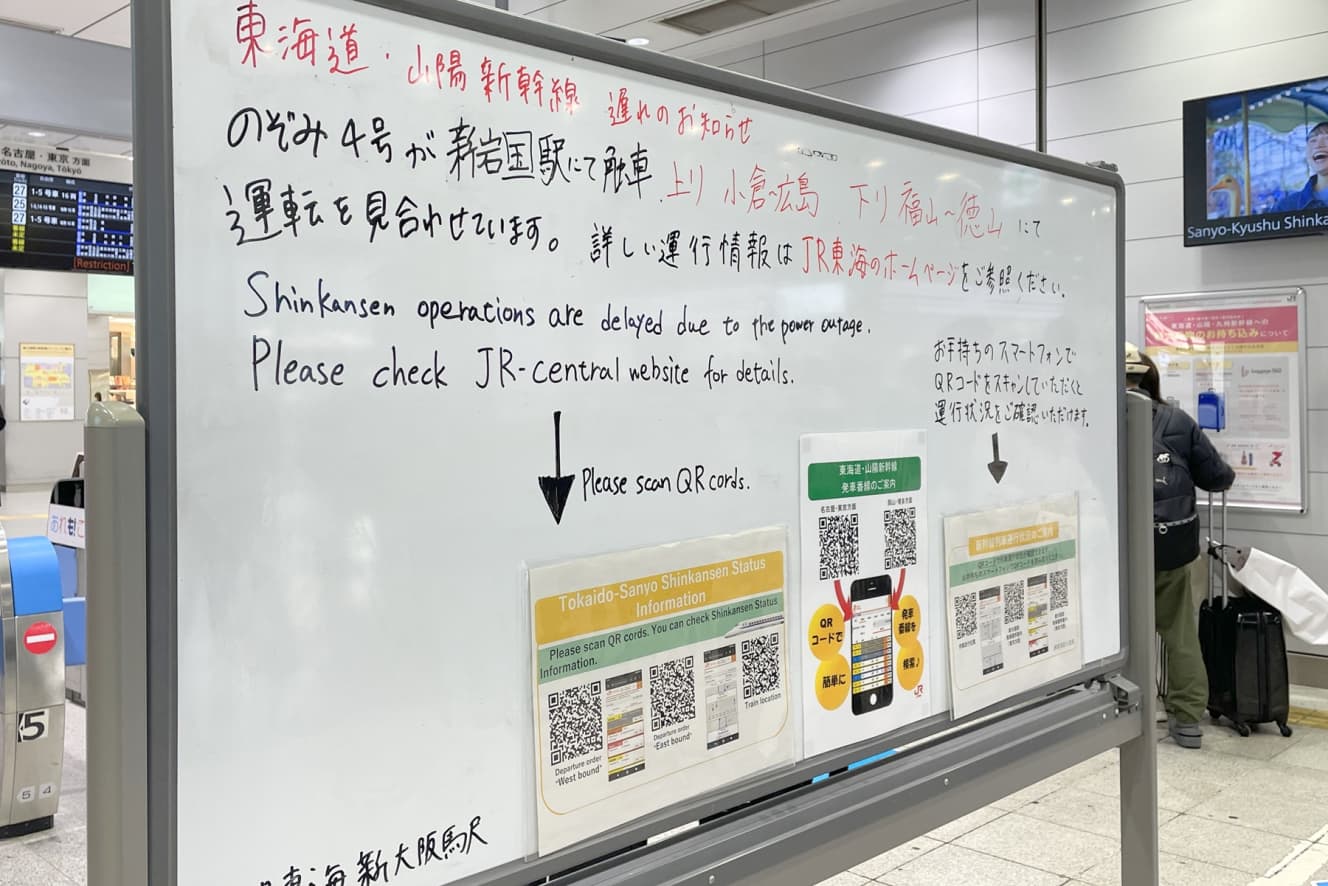 東海道・山陽新幹線 遅れのお知らせ
のぞみ4号が新岩国駅にて触車
上り 小倉~広島 下り 福山~徳山 にて
運転を見合わせています。詳しい運行情報はJR東海のホームページをご参照ください。
Shinkansen operations are delayed due to the power outage.
Please check JR-central website for details.
Please scan QR cords.
お手持ちのスマートフォンで
QRコードをスキャンしていただくと
運行状況をご確認いただけます。
Tokaido-Sanyo Shinkansen Status
Information
Please scan QR cords. You can check Shinkansen Status
Information.
Departure order
"West bound"
Departure order
"East bound"
Train location
東海道・山陽新幹線
発車番線のご案内
名古屋・東京方面
岡山・博多方面
QR
コードで
簡単に
発車
番線を
検索♪
JR
新幹線列車運行状況のご案内
東海新大阪駅
名古屋・東京 方面
Nagoya, Tōkyō
27
25
27
1-5号車
1-5号車
Restriction
5
5 4
Sanyo-Kyushu Shinka
東海道・山陽・九州新幹線への
のお持ち込みについて